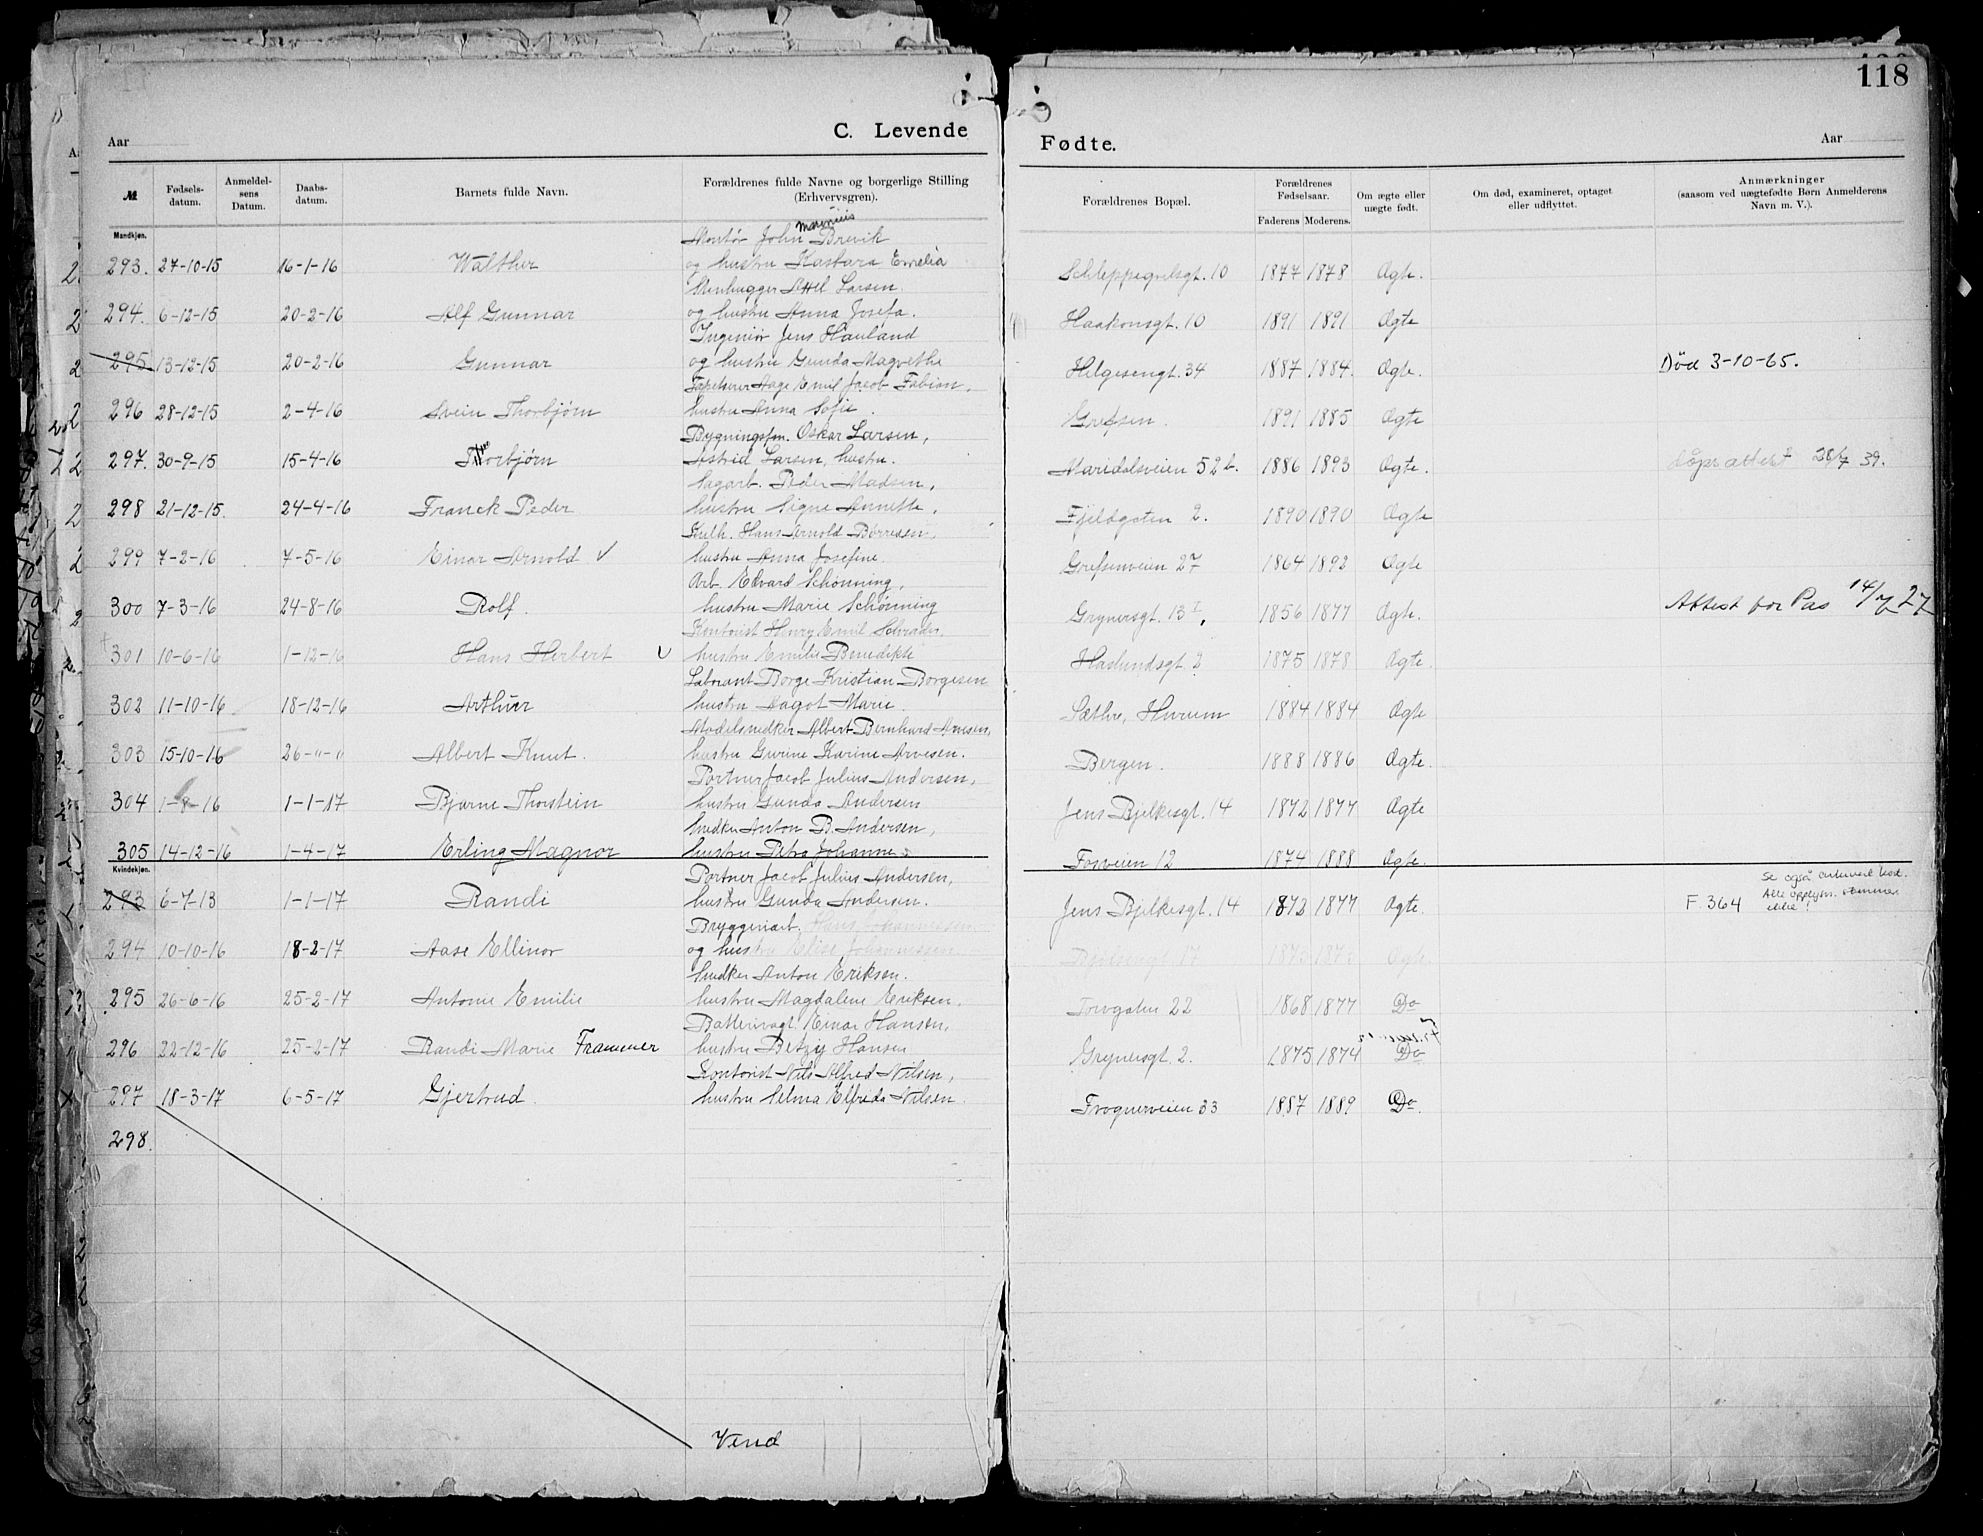 118
Aar
C. Levende Fødte.
Aar
№ Fødsels-datum. Anmeldel-sens Datum. Daabs-datum. Barnets fulde Navn. Forældrenes fulde Navne og borgerlige Stilling (Erhvervsgren). Forældrenes Bopæl. Forældrenes Fødselsaar. Faderens Moderens. Om ægte eller uægte født. Om død, examineret, optaget eller udflyttet. Anmærkninger (saasom ved uægtefødte Børn Anmelderens Navn m. V.).
Mandkjøn.
Montør John Brevik
293. 27-10-15 16-1-16 Walther og hustru Emelia Schleppegrelsgt. 10 1877 1878 Ægte.
Stenhugger Larsen.
294. 6-12-15 20-2-16 Alf Gunnar og hustru Anna Josefa. Haakonsgt. 10 1891 1891 Ægte
Ingeniør Jens Hauland
295 13-12-15 20-2-16 Gunnar og hustru Gunda Magrethe Helgesengt. 34 1887 1884. Ægte. Død 3-10-65.
Tapetserer Aage Emil Jacob Fabian.
296 28-12-15 2-4-16 Svein Thorbjørn hustru Anna Sofie. Grefsen. 1891 1885 Ægte
Bygningsfm. Oskar Larsen,
297. 30-9-15 15-4-16 Thorbjørn Astrid Larsen, hustru. Maridalsveien 52 b. 1886 1893 Ægte. dåpsattest 28/7 39.
Sagarb. Peder Madsen,
298 21-12-15 24-4-16 Franck Peder hustru Signe Annette, Fjeldgaten 2. 1890 1890 Ægte
Hans Arnold Børresen,
299 7-2-16 7-5-16 Einar Arnold √ hustru Anna Josefine. Grefsenveien 27 1864 1892 Ægte
Arb. Edvard Schønning,
300 7-3-16 24-8-16 Rolf. hustru Marie Schønning Grynersgt. 13 I, 1856 1877 Ægte. Attest for Pas 14/7 27
Kontorist Henry Emil Schrader.
301 10-6-16 1-12-16 Hans Herbert √ hustru Emilie Benedikte Haslundsgt. 2 1875 1878 Ægte.
Laborant Borge Kristian Borgesen
302 11-10-16 18-12-16 Arthur hustru Dagot Marie. Sæthre, Hurum 1884 1884 Ægte
Modelsnedker Albert Bernhard Arnesen,
303 15-10-16 26-"-" Albert Knut. hustru Gurine Karine Arvesen. Bergen. 1888 1886 Ægte.
Portner Jacob Julius Andersen,
304 1-8-16 1-1-17 Bjarne Thorstein hustru Gunda Andersen Jens Bjelkesgt. 14 1872 1877 Ægte
Snedker Anton B. Andersen,
305 14-12-16 1-4-17 Erling Magnor hustru Petra Johanne Fosveien 12 1874 1888 Ægte.
Kvindekjøn.
Portner Jacob Julius Andersen, Se også
293 6-7-13 1-1-17 Randi hustru Gunda Andersen. Jens Bjelkesgt. 14 1872 1877 Ægte. F. 364 Alle opplysn. stemmer ikke!
Bryggeriarb. Hans Johannessen
294 10-10-16 18-2-17 Aase Ellinor og hustru Elise Johannessen 17 1873 1873 Ægte
Snedker Anton Eriksen.
295 26-6-16 25-2-17 Antonie Emilie hustru Magdalene Eriksen. Torvgaten 22 1868 1877 Do
Batterivagt. Einar Hansen,
296 22-12-16 25-2-17 Randi Marie Frammer hustru Betzy Hansen Grynersgt. 2. 1875 1874 Do
Kontorist Nils Alfred Nilsen,
297 18-3-17 6-5-17 Gjertrud. hustru Selma Elfrida Nilsen. Frognerveien 33 1887 1889 Do.
298.
Vend